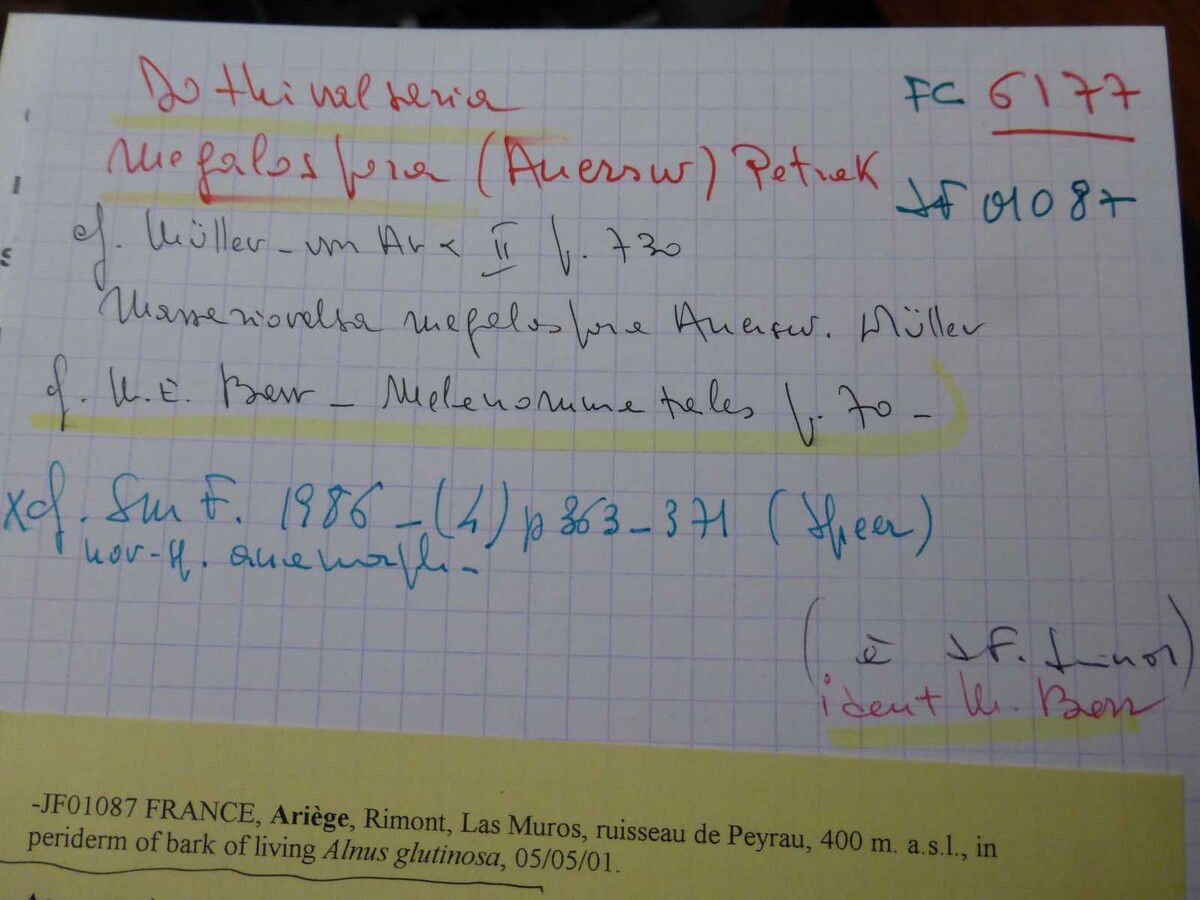 Dothivalseria FC 6177
megalospora (Auersw) Petrak JF 01087
cf. Müller - von Arx II p. 730
Massariovalsa megalospora Auersw. Müller
cf. M.E. Barr - Melanommatales p. 70 -
xcf. SMF. 1986 - (4) p 363-371 (Speer)
nov-H. anamorph. -
(è JF. )
ident M. Barr
-JF01087 FRANCE, Ariège, Rimont, Las Muros, ruisseau de Peyrau, 400 m. a.s.l., in
periderm of bark of living Alnus glutinosa, 05/05/01.